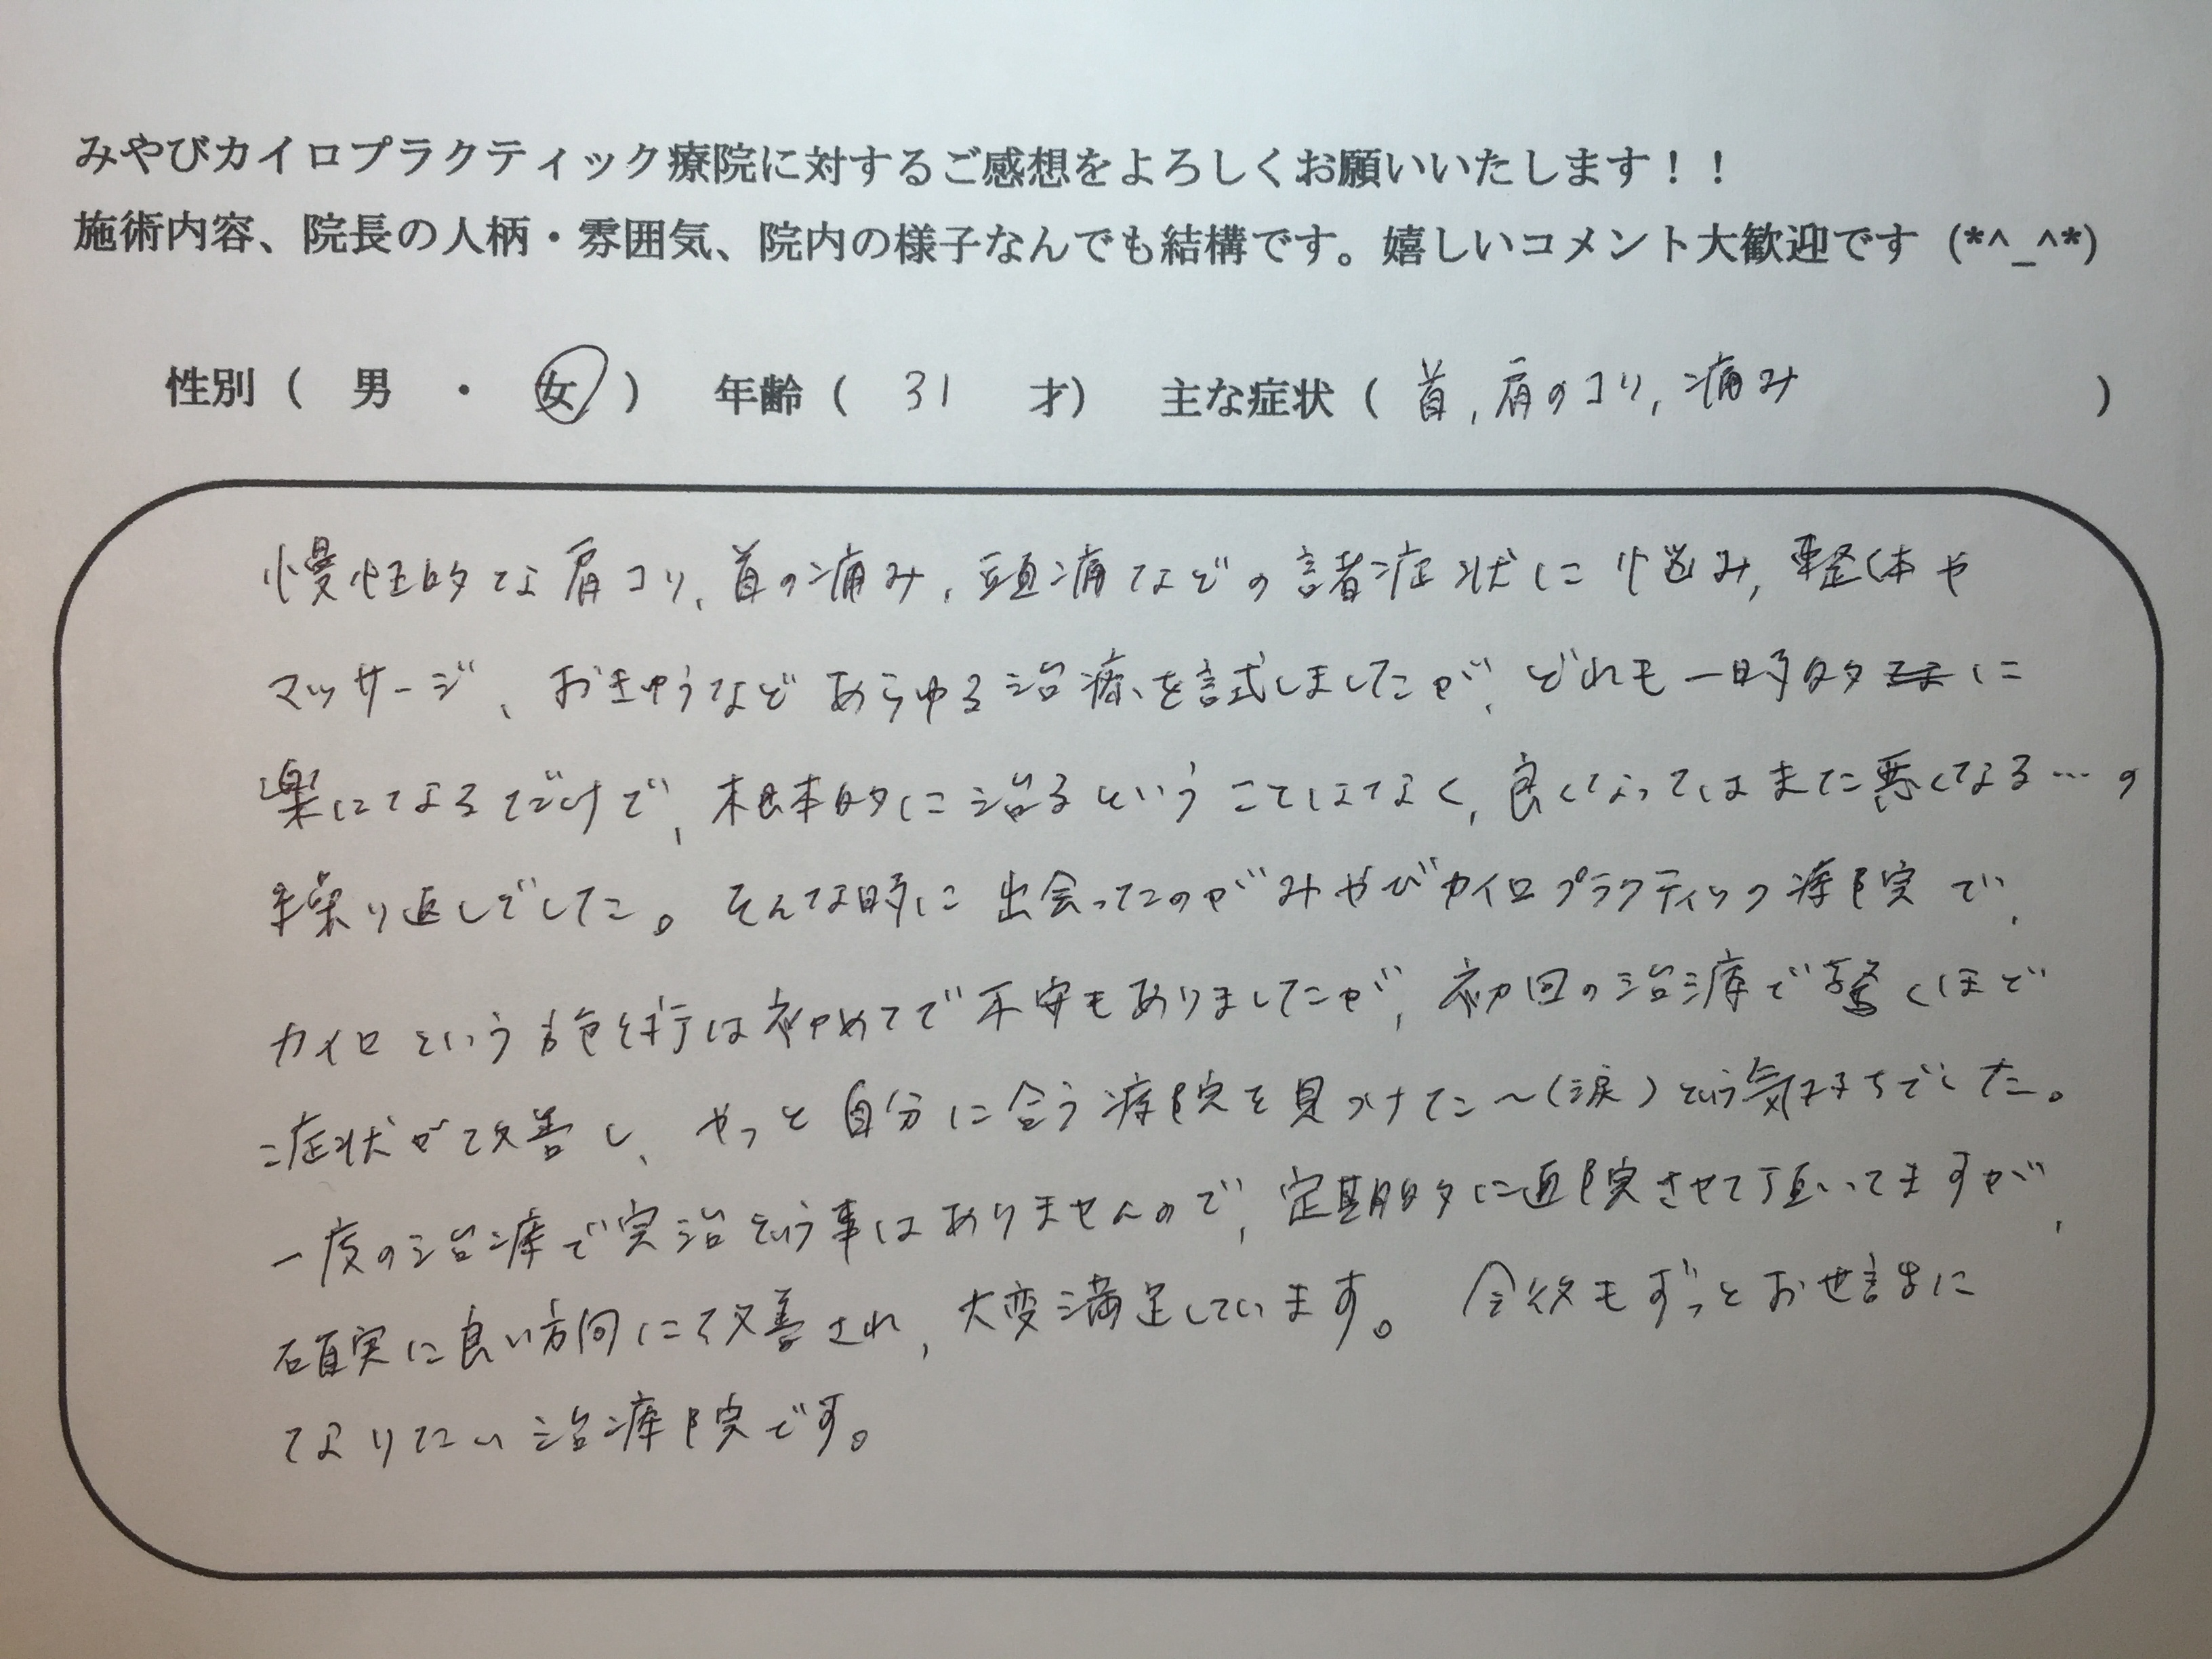 みやびカイロプラクティック療院に対するご感想をよろしくお願いいたします！！
施術内容、院長の人柄・雰囲気、院内の様子なんでも結構です。嬉しいコメント大歓迎です（*^_^*）
性別（ 男 ・ 女 ） 年齢（ 31 才） 主な症状（ 首、肩のコリ、痛み ）
慢性的な肩コリ、首の痛み、頭痛などの諸症状に悩み、整体や
マッサージ、おきゅうなどあらゆる治療を試しましたが、どれも一時的に
楽になるだけで、根本的に治るということはなく、良くなってはまた悪くなる…の
繰り返しでした。そんな時に出会ったのがみやびカイロプラクティック療院で、
カイロという施術は初めてで不安もありましたが、初回の治療で驚くほど
症状が改善し、やっと自分に合う療院を見つけた〜（涙）という気持ちでした。
一度の治療で完治という事はありませんので、定期的に通院させて頂いてますが、
確実に良い方向に改善され、大変満足しています。 今後もずっとお世話に
なりたい治療院です。